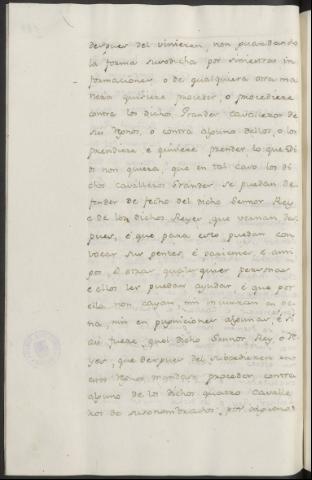 despues del vinieren, non guardando
la forma susodicha por siniestras in
formaciones, o de qualquiera otra ma
nera quisiere proceder, o procediere
contra los dichos Grandes Cavalleros de
sus Reynos, ó contra alguno dellos, o los
prendiere e quisiere prender, lo que Di
os non quiera, que en tal caso los di
chos cavalleros Grandes se puedan de
fender de fecho del dicho Sennor Rey,
e de los dichos Reyes, que vernan des
pues, é que para esto puedan con
vocar sus gentes, é parientes, é ami
gos, é otras qualesquier personas
e ellos les puedan ayudar, é que por
ello non cayan, nin incurran en pe
na, nin en puniciones algunas, é si
asi fuere, quel dicho Sennor Rey, o Re
yes, que despues del subcedieren en
estos Reynos, mandare proceder contra
alguno de los dichos quatro Cavalle
ros de susonombrados, por alguna